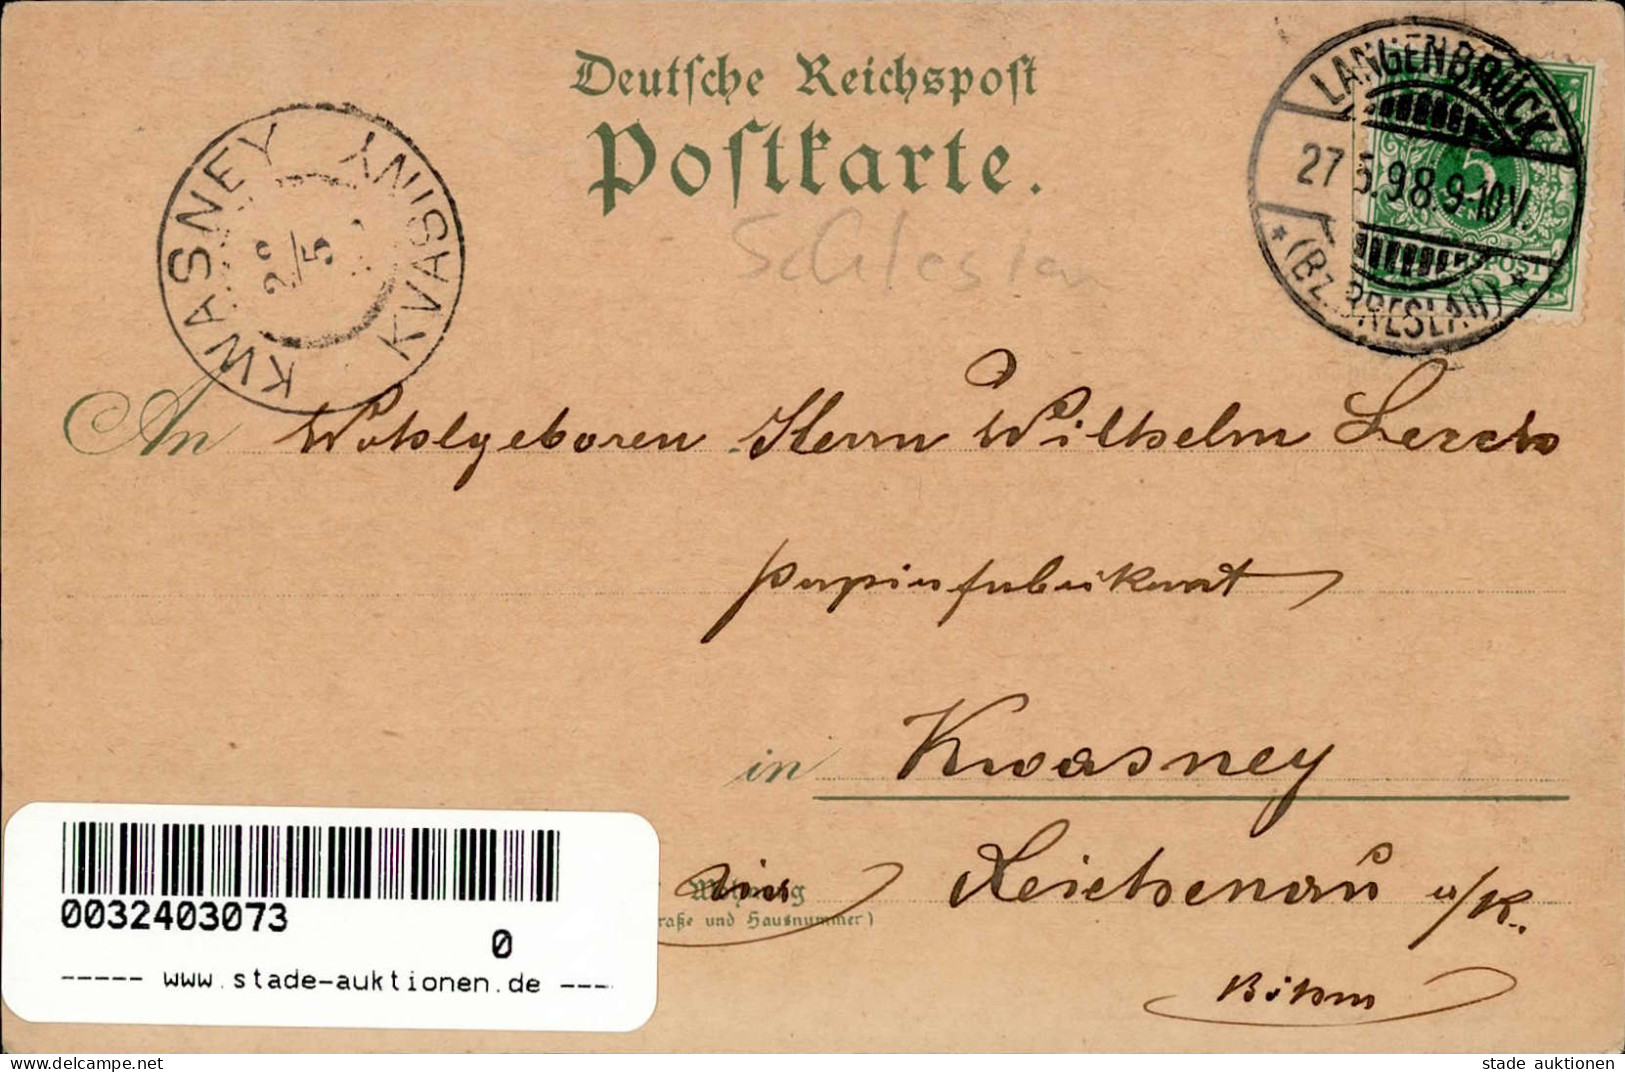 Deutsche Reichspost
Postkarte.
LANGENBRÜCK
27 5.98.9-10V.
* (BZ. BRESLAU) *
KWASNEY KVASINY
28/5
5
Schlesien
An Wohlgeboren Herrn Wilhelm Lerch
in Kwasney
via Reichenau a/K.
Wohnung
raße und Hausnummer)
Böhm
0032403073
0
----- www.stade-auktionen.de ---
stade auktionen
www.delcampe.net